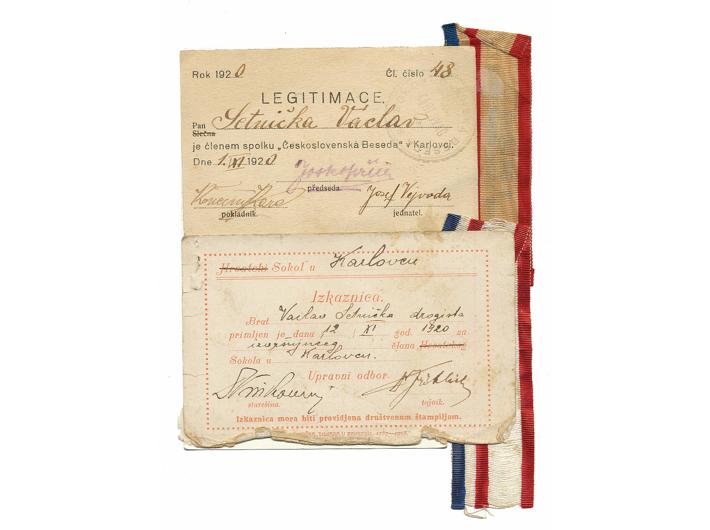 Rok 1920 Čl. číslo 48
LEGITIMACE.
Pan Setnička Václav
Slečna
je členem spolku „Československá Beseda" v Karlovci.
Dne 1. XI 1920
předseda.
Josef Vejvoda
pokladník. jednatel.
Hrvatski Sokol u Karlovcu
Izkaznica.
Brat Vaclav Setnička drogista
primljen je dana 12 / XI god. 1920 za
člana Hrvatskog
Sokola u Karlovcu.
Upravni odbor.
starešina. tajnik.
Izkaznica mora biti providjena društvenom štampiljom.